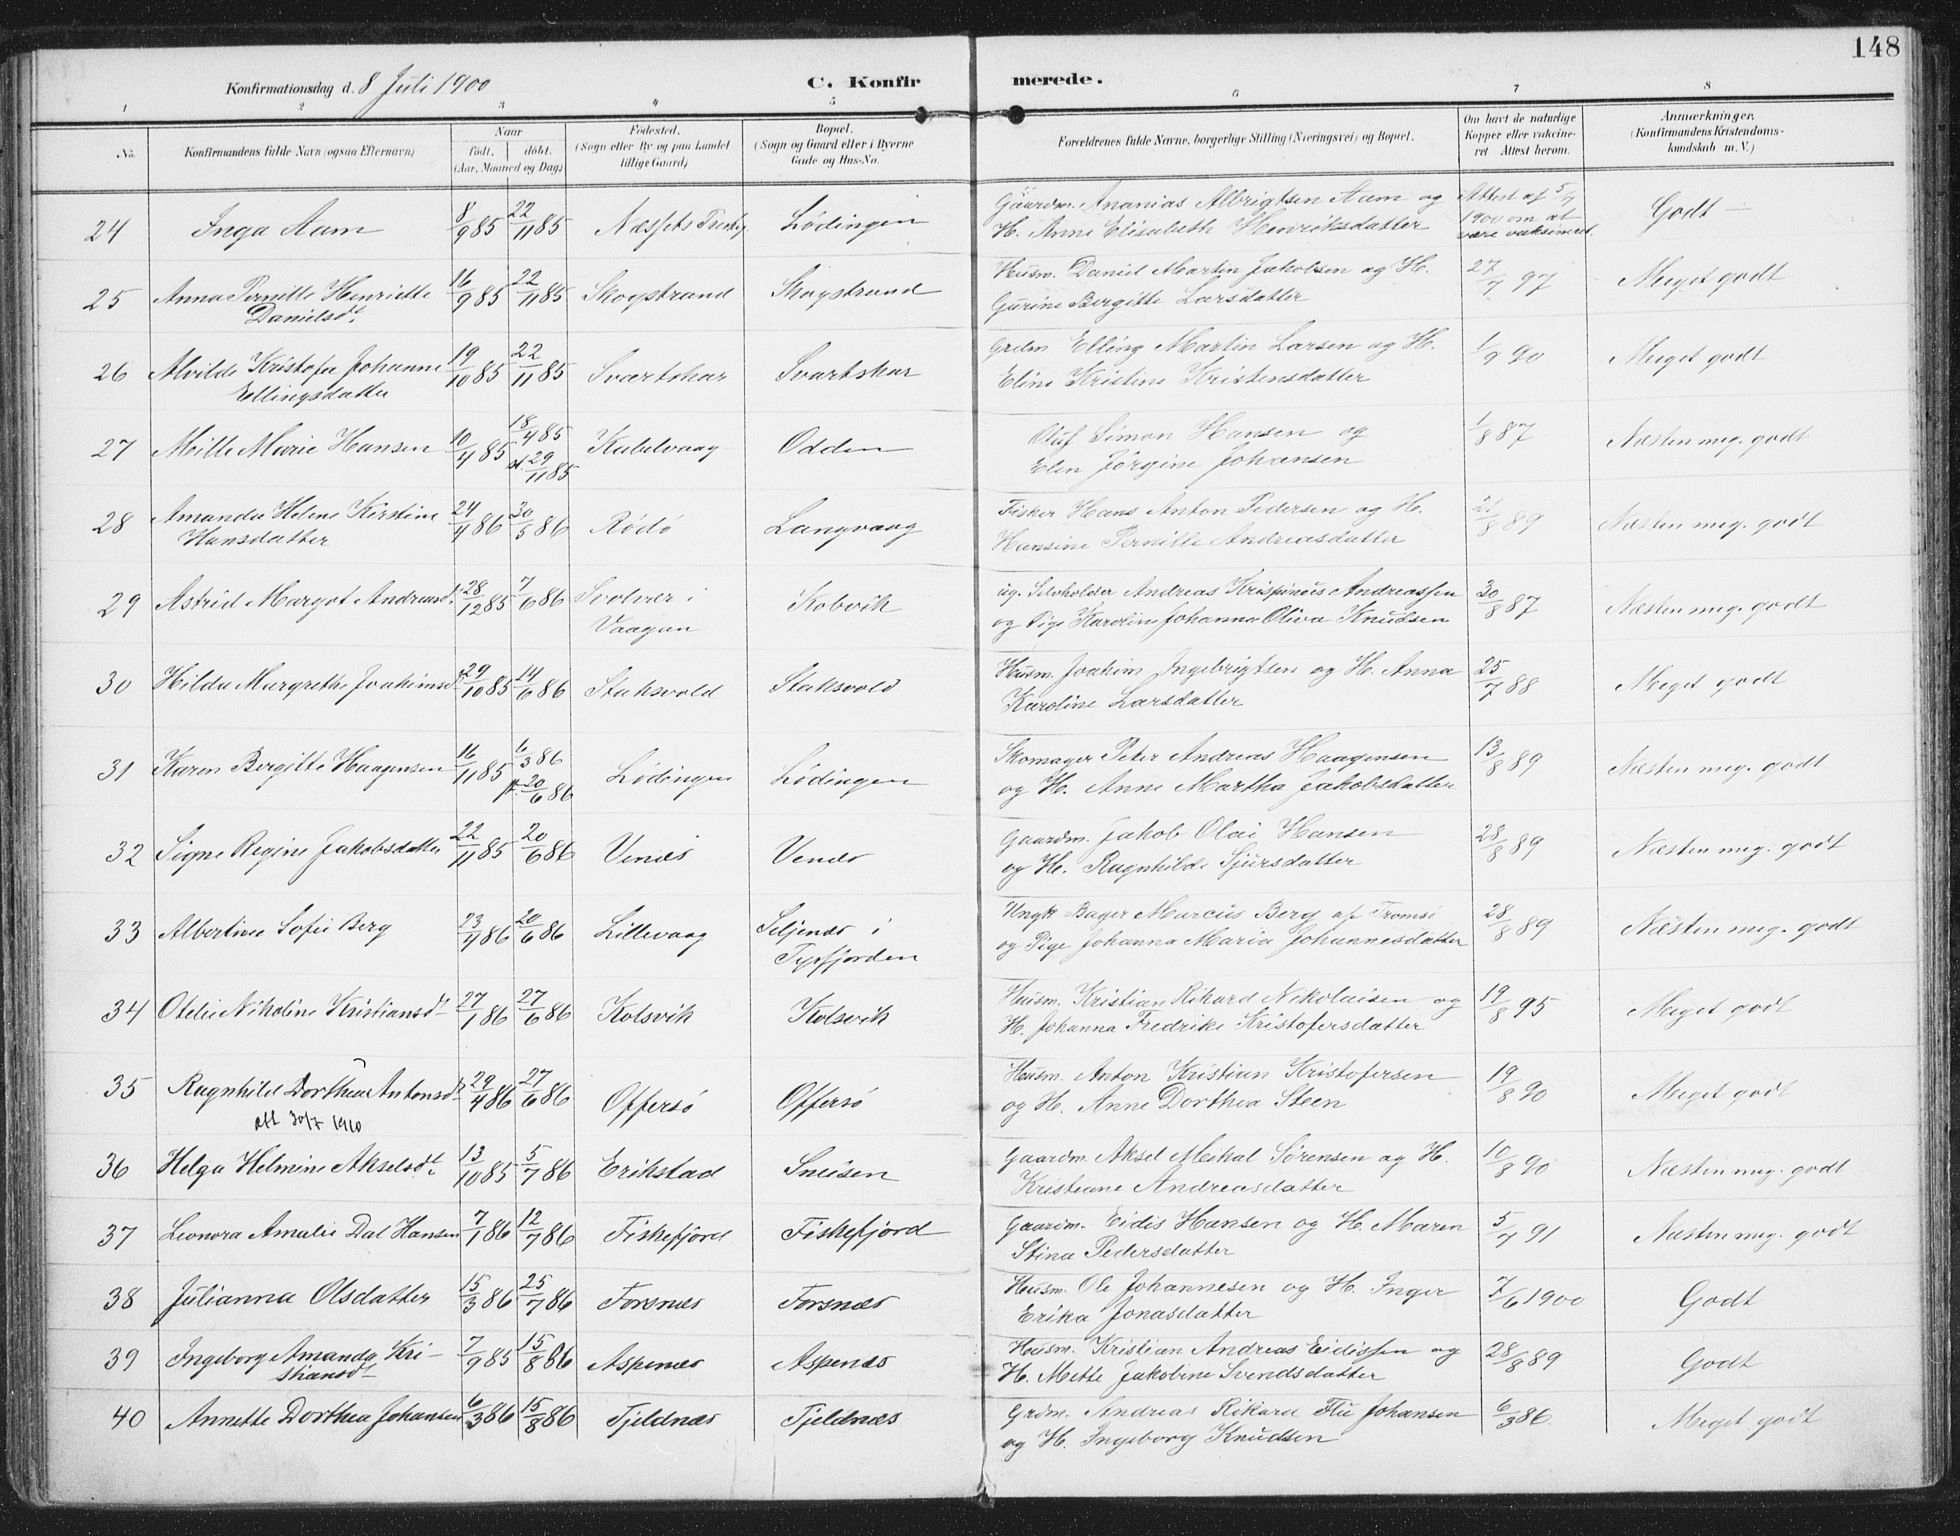 148
Konfirmationsdag d. 8 Juli 1900 C. Konfirmerede.
1 2 3 4 5 6 7 8
No.
Konfirmandens fulde Navn (ogsaa Efternavn)
Naar
født. døbt.
(Aar, Maaned og Dag)
Fødested.
(Sogn eller By og paa Landet
tillige Gaard)
Bopæl.
(Sogn og Gaard eller i Byerne
Gade og Hus-No.
Forældrenes fulde Navne, borgerlige Stilling (Næringsvei) og Bopæl.
Om havt de naturlige
Kopper eller vakcine-
ret Attest herom.
Anmærkninger.
(Konfirmandens Kristendoms-
kundskab m. V.)
24 Inga Aam 8/9 85 22/11 85 Lødingen Gaardm. Ananias Albrigtsen Aam og Attest af 5/7 Godt –
H. Anne Elisabeth Henriksdatter 1900 om at
være vaksineret.
25 Anna Pernille Henriette 16/9 85 22/11 85 Skogstrand Skogstrand Husm. Daniel Martin Jakobsen og H. 27/7 97 Meget godt
Danielsdt. Gurine Bergitte Larsdatter
26 Alvilde Kristofa Johanne 19/10 85 22/11 85 Svartskar Svartskar Grdm Elling Martin Larsen og H. 1/9 90 Meget godt
Ellingsdatter Eline Kristine Kristensdatter
27 Milla Marie Hansen 10/4 85 18/4 85 Kabelvaag Odden Oluf Simon Hansen og 1/8 87 Næsten meg. godt
st. 29/11 85 Elen Jørgine Johansen
28 Amanda Helene Kirstine 24/4 86 30/5 86 Rødø Langvaag Fisker Hans Anton Pedersen og H. 21/8 89 Næsten meg. godt
Hansdatter Hansine Pernille Andreasdatter
29 Astrid Margot Andreasd. 28/12 85 7/6 86 Svolvær i Kobvik ug. Selvholder Andreas Krispinus Andreassen 30/8 87 Næsten meg. godt
Vaagan og Pige Karoline Johanna Oliva Knudsen
30 Hilda Margrethe Joakimsdt 29/10 85 14/6 86 Staksvold Staksvold Husm. Joakim Ingebrigtsen og H. Anna 25/7 88 Meget godt
Karoline Larsdatter
31 Karen Bergitte Haagensen 16/11 85 6/3 86 Lødingen Lødingen Skomager Peter Andreas Haagensen 13/8 89 Næsten meg. godt
20/6 86 og H. Anne Martha Jakobsdatter
32 Signe Regine Jakobsdatter 22/11 85 20/6 86 Venæs Venæs Gaardm. Jakob Olai Hansen 28/8 89 Næsten meg. godt
og H. Ragnhilde Sjursdatter
33 Albertine Sofie Berg 23/4 86 20/6 86 Lillevaag Seljenæs i Ungk. Bager Marcus Berg af Tromsø 28/8 89 Næsten meg. godt
Tysfjorden og Pige Johanna Maria Johannesdatter
34 Otelie Nikoline Kristiansdt 27/1 86 27/6 86 Kolsvik Kolsvik Husm. Kristian Rikard Nikolaisen og 19/8 95 Meget godt
H. Johanna Fredrike Kristofersdatter
35 Ragnhild Dorthea Antonsdt 29/4 86 27/6 86 Offersø Offersø Husm. Anton Kristian Kristofersen 19/8 90 Meget godt
att 30/7 1910 og H. Anne Dorthea Steen
36 Helga Helmine Akselsdt. 13/10 85 5/7 86 Erikstad Sneisen Gaardm. Aksel Meikal Sørensen og H. 10/8 90 Næsten meg. godt
Kristiane Andreasdatter
37 Leonora Amalie Dal Hansen 7/1 86 12/7 86 Fiskefjord Fiskefjord Gaardm. Eidis Hansen og H. Maren 5/7 91 Næsten meg. godt
Stina Pedersdatter
38 Julianna Olsdatter 15/3 86 25/7 86 Forsnæs Forsnæs Husm. Ole Johannesen og H. Inger 7/6 1900 Godt
Erika Jonasdatter
39 Ingeborg Amanda Kri- 7/9 85 15/8 86 Aspenæs Aspenæs Husm. Kristian Andreas Eidissen og 28/8 89 Godt
stiansdt H. Mette Jakobine Svendsdatter
40 Annette Dorthea Johansen 6/3 86 15/8 86 Tjeldnæs Tjeldnæs Grdm. Andreas Rikard Flu Johansen 6/3 86. Meget godt
og H. Ingeborg Knudsen